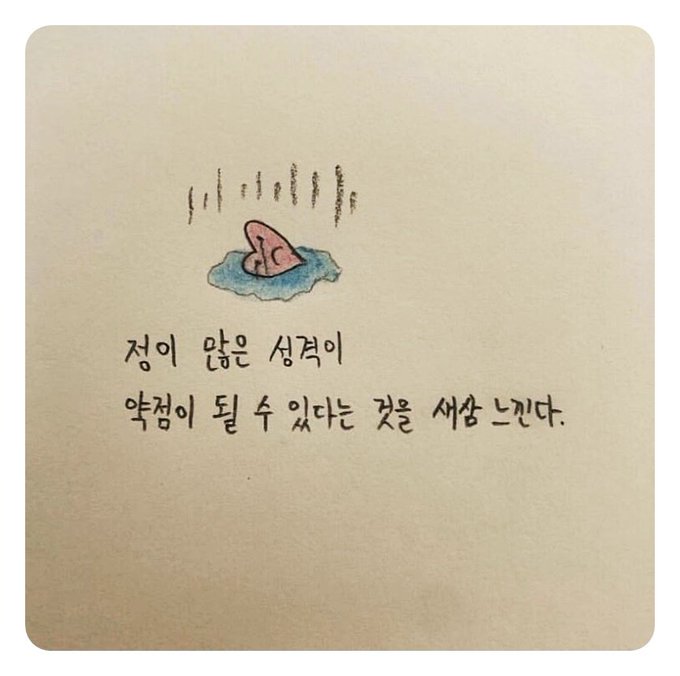 정이 많은 성격이
약점이 될 수 있다는 것을 새삼 느낀다.